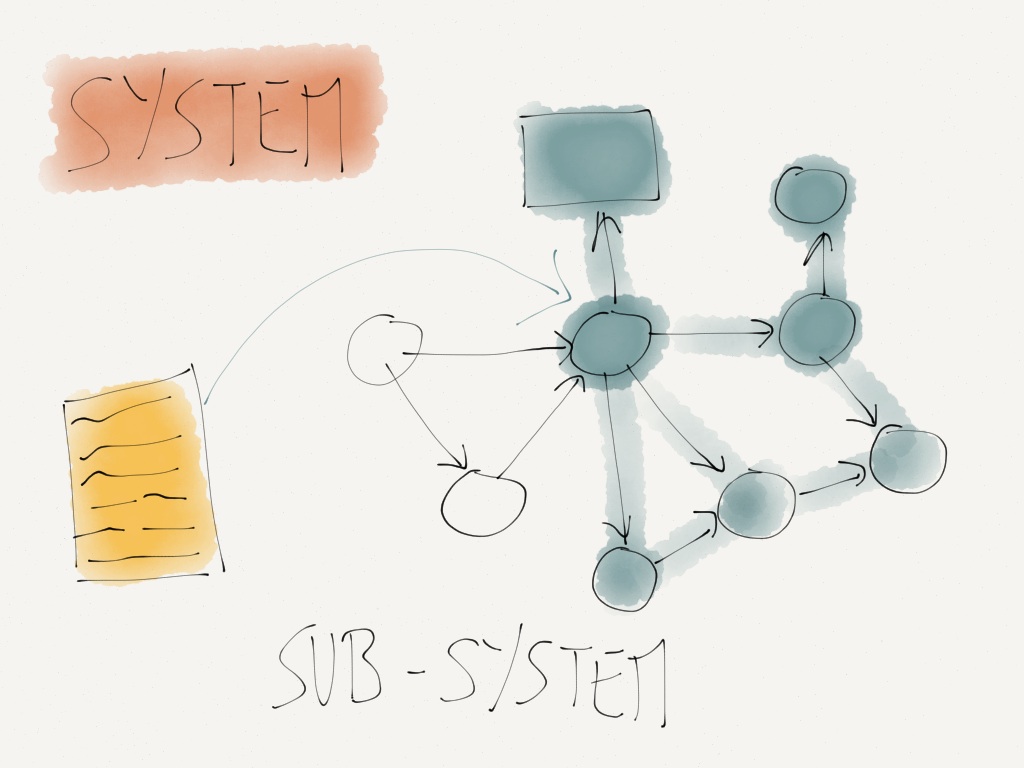 SYSTEM
SUB-SYSTEM